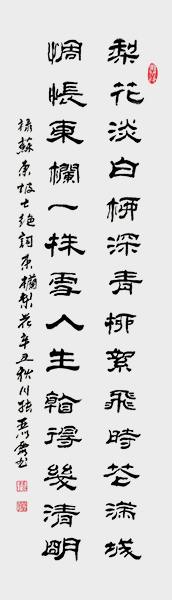 梨花淡白柳深青柳絮飛時花滿城
惆悵東欄一株雪人生看得幾清明
錄蘇東坡七絕詞東欄梨花辛丑秋川張書